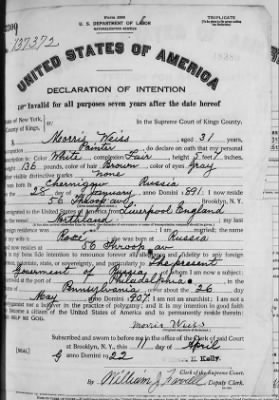 Form 2203
U. S. DEPARTMENT OF LABOR
NATURALIZATION SERVICE
TRIPLICATE
No. 137372
UNITED STATES OF AMERICA
DECLARATION OF INTENTION
Invalid for all purposes seven years after the date hereof
State of New York,
County of Kings,
In the Supreme Court of Kings County.
I, Morris Weiss, aged 31 years,
occupation Painter, do declare on oath that my personal
description is: Color White, complexion Fair, height 5 feet 7 inches,
weight 136 pounds, color of hair Brown, color of eyes Gray
other visible distinctive marks none
Russia
on the 25 day of January, anno Domini 1891; I now reside
at 56 Throop ave, Brooklyn, N. Y.
I emigrated to the United States of America from Liverpool England
on the vessel ; my last
foreign residence was ; I am married; the name
of my wife is Rose; she was born at Russia
and now resides at 56 Throop av
It is my bona fide intention to renounce forever all allegiance and fidelity to any foreign
prince, potentate, state, or sovereignty, and particularly to The present
Government of Russia, of whom I am now a subject;
I arrived at the port of Philadelphia, in the
State of Pennsylvania, on or about the 26 day
of May, anno Domini 1907; I am not an anarchist; I am not a
polygamist nor a believer in the practice of polygamy; and it is my intention in good faith
to become a citizen of the United States of America and to permanently reside therein:
SO HELP ME GOD.
Morris Weiss
Subscribed and sworn to before me in the office of the Clerk of said Court
at Brooklyn, N. Y., this 11 day of April
anno Domini 1922
[SEAL]
Kelly.
Clerk of the Supreme Court.
By William J. , Deputy Clerk.